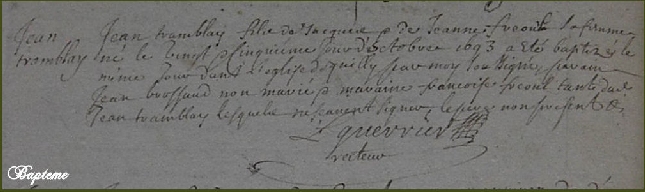 Jean Jean tramblay fils de Jacques & de Jeanne freoul sa femme
tramblay né le vingt cinquieme jour d'octobre 1693 a eté baptizé le
mesme jour dans l'eglise de quilly par moy soubsigné, parain
Jean brossaud non marié & maraine francoise freoul tante dud
Jean tramblay lesquels ne scavent signer, le pere non present &,
L guerrier
recteur
Bapteme